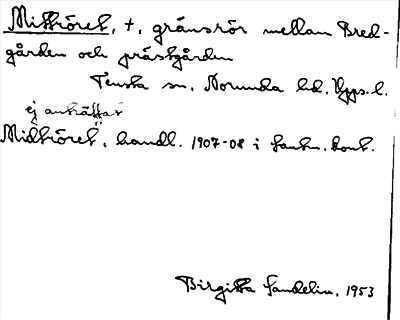 Mittröret, +, gränsrör mellan Bred-
gården och prästgården
Tensta sn, Norunda hd, Upps. l.
ej anträffat
Midtröret, handl. 1907-08 i lantm. kont.
Birgitta Sandelin, 1953